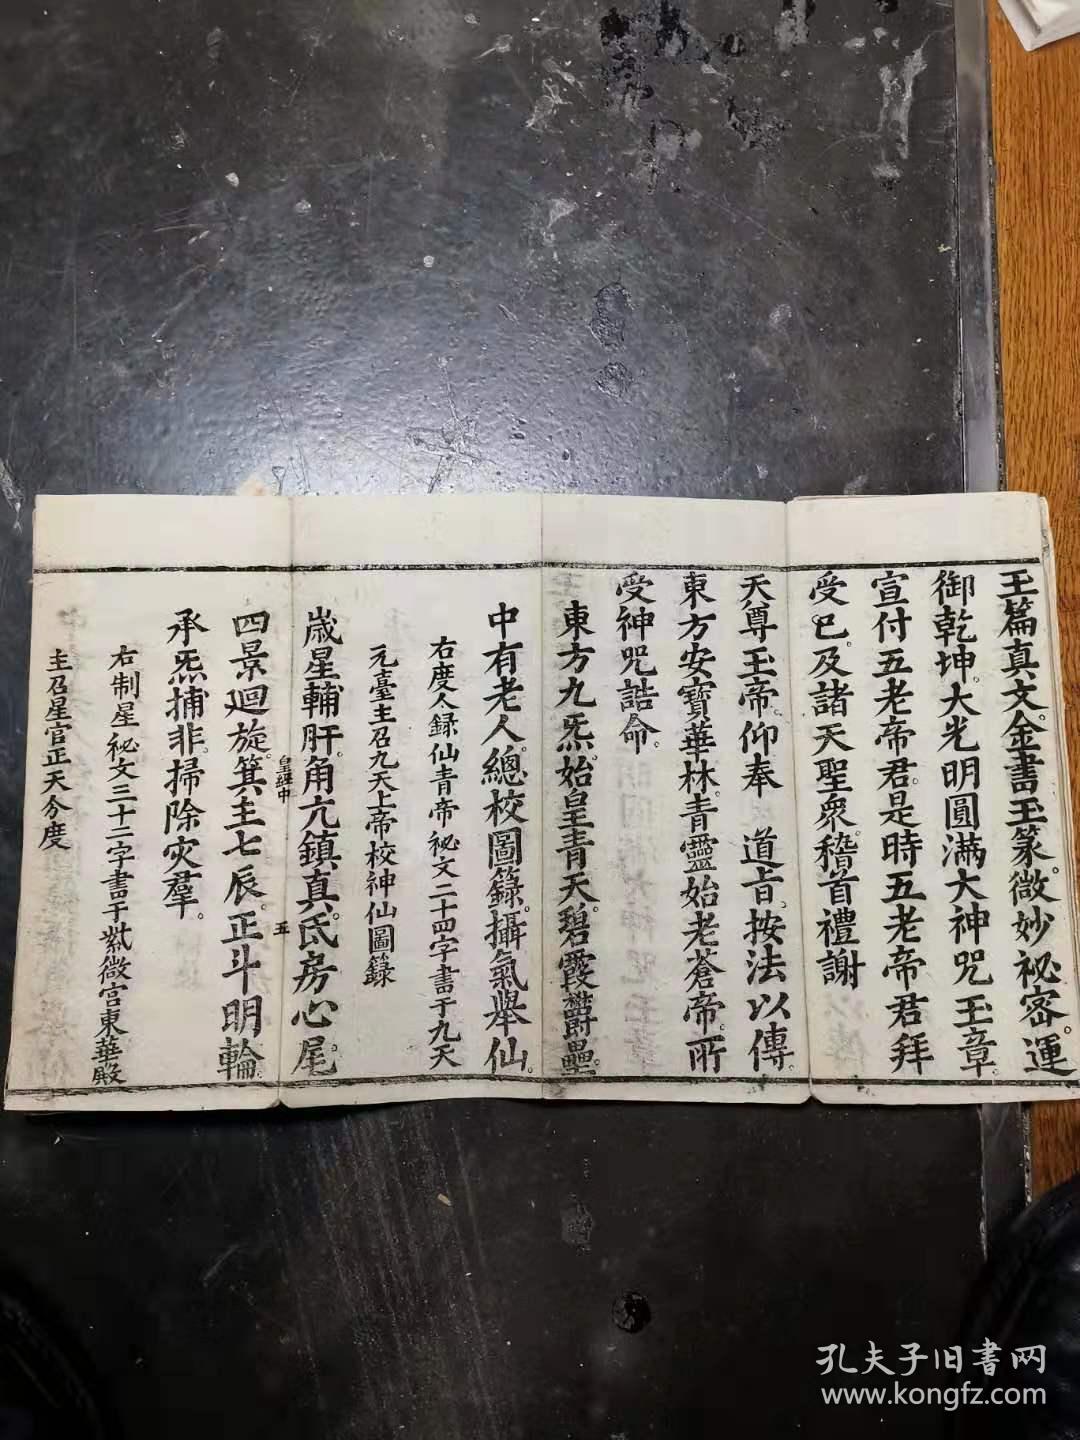 玉篇真文。金書玉篆。微妙祕密。運
御乾坤。大光明圓滿大神咒玉章。
宣付五老帝君。是時五老帝君拜
受已。及諸天聖衆。稽首禮謝
天尊玉帝。仰奉　道旨。按法以傳。
東方安寶華林。青靈始老蒼帝。所
受神咒誥命。
東方九炁。始皇青天。碧霞欝壘。
中有老人。總校圖籙。攝氣舉仙。
右度人錄仙青帝祕文二十四字書于九天
元臺主召九天上帝校神仙圖籙
歲星輔肝。角亢鎮真。氐房心尾。
皇經中
五
四景迴旋。箕主七辰。正斗明輪。
承炁捕非。掃除灾羣。
右制星祕文三十二字書于紫微宮東華殿
主召星官正天分度
孔夫子旧书网
www.kongfz.com